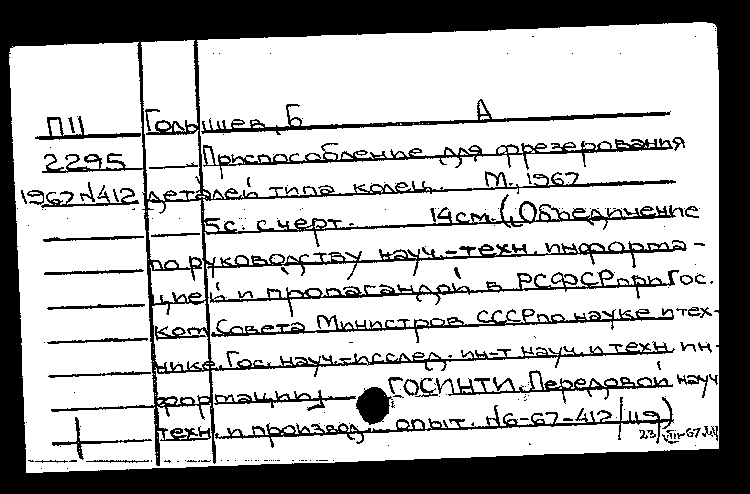 П11 Голышев, Б А
2295 Приспособление для фрезерования
1967 N412 деталей типа колец. М., 1967
5с. с черт. 14см. (Объединение
по руководству науч.-техн. информа-
цией и пропагандой в РСФСР при Гос.
ком. Совета Министров СССР по науке и тех-
нике. Гос. науч.-исслед. ин-т науч. и техн. ин-
формации. ГОСИНТИ. Передовой науч
техн. и производ. опыт. N6-67-412/119)